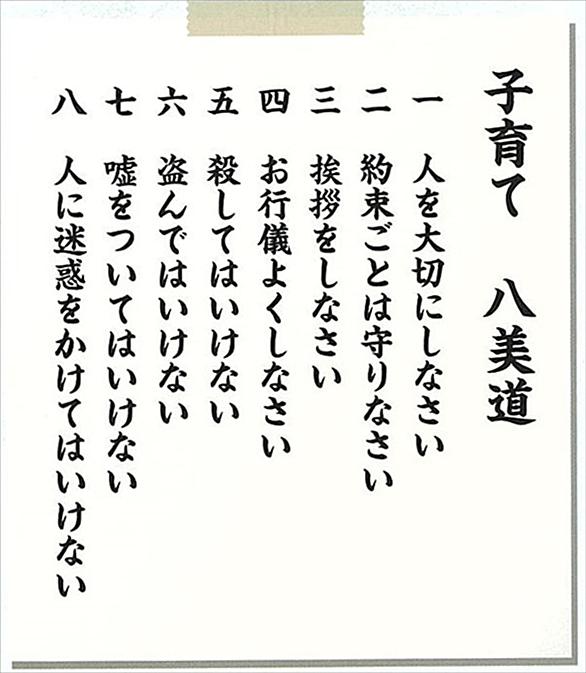 子育て 八美道
一 人を大切にしなさい
二 約束ごとは守りなさい
三 挨拶をしなさい
四 お行儀よくしなさい
五 殺してはいけない
六 盗んではいけない
七 嘘をついてはいけない
八 人に迷惑をかけてはいけない